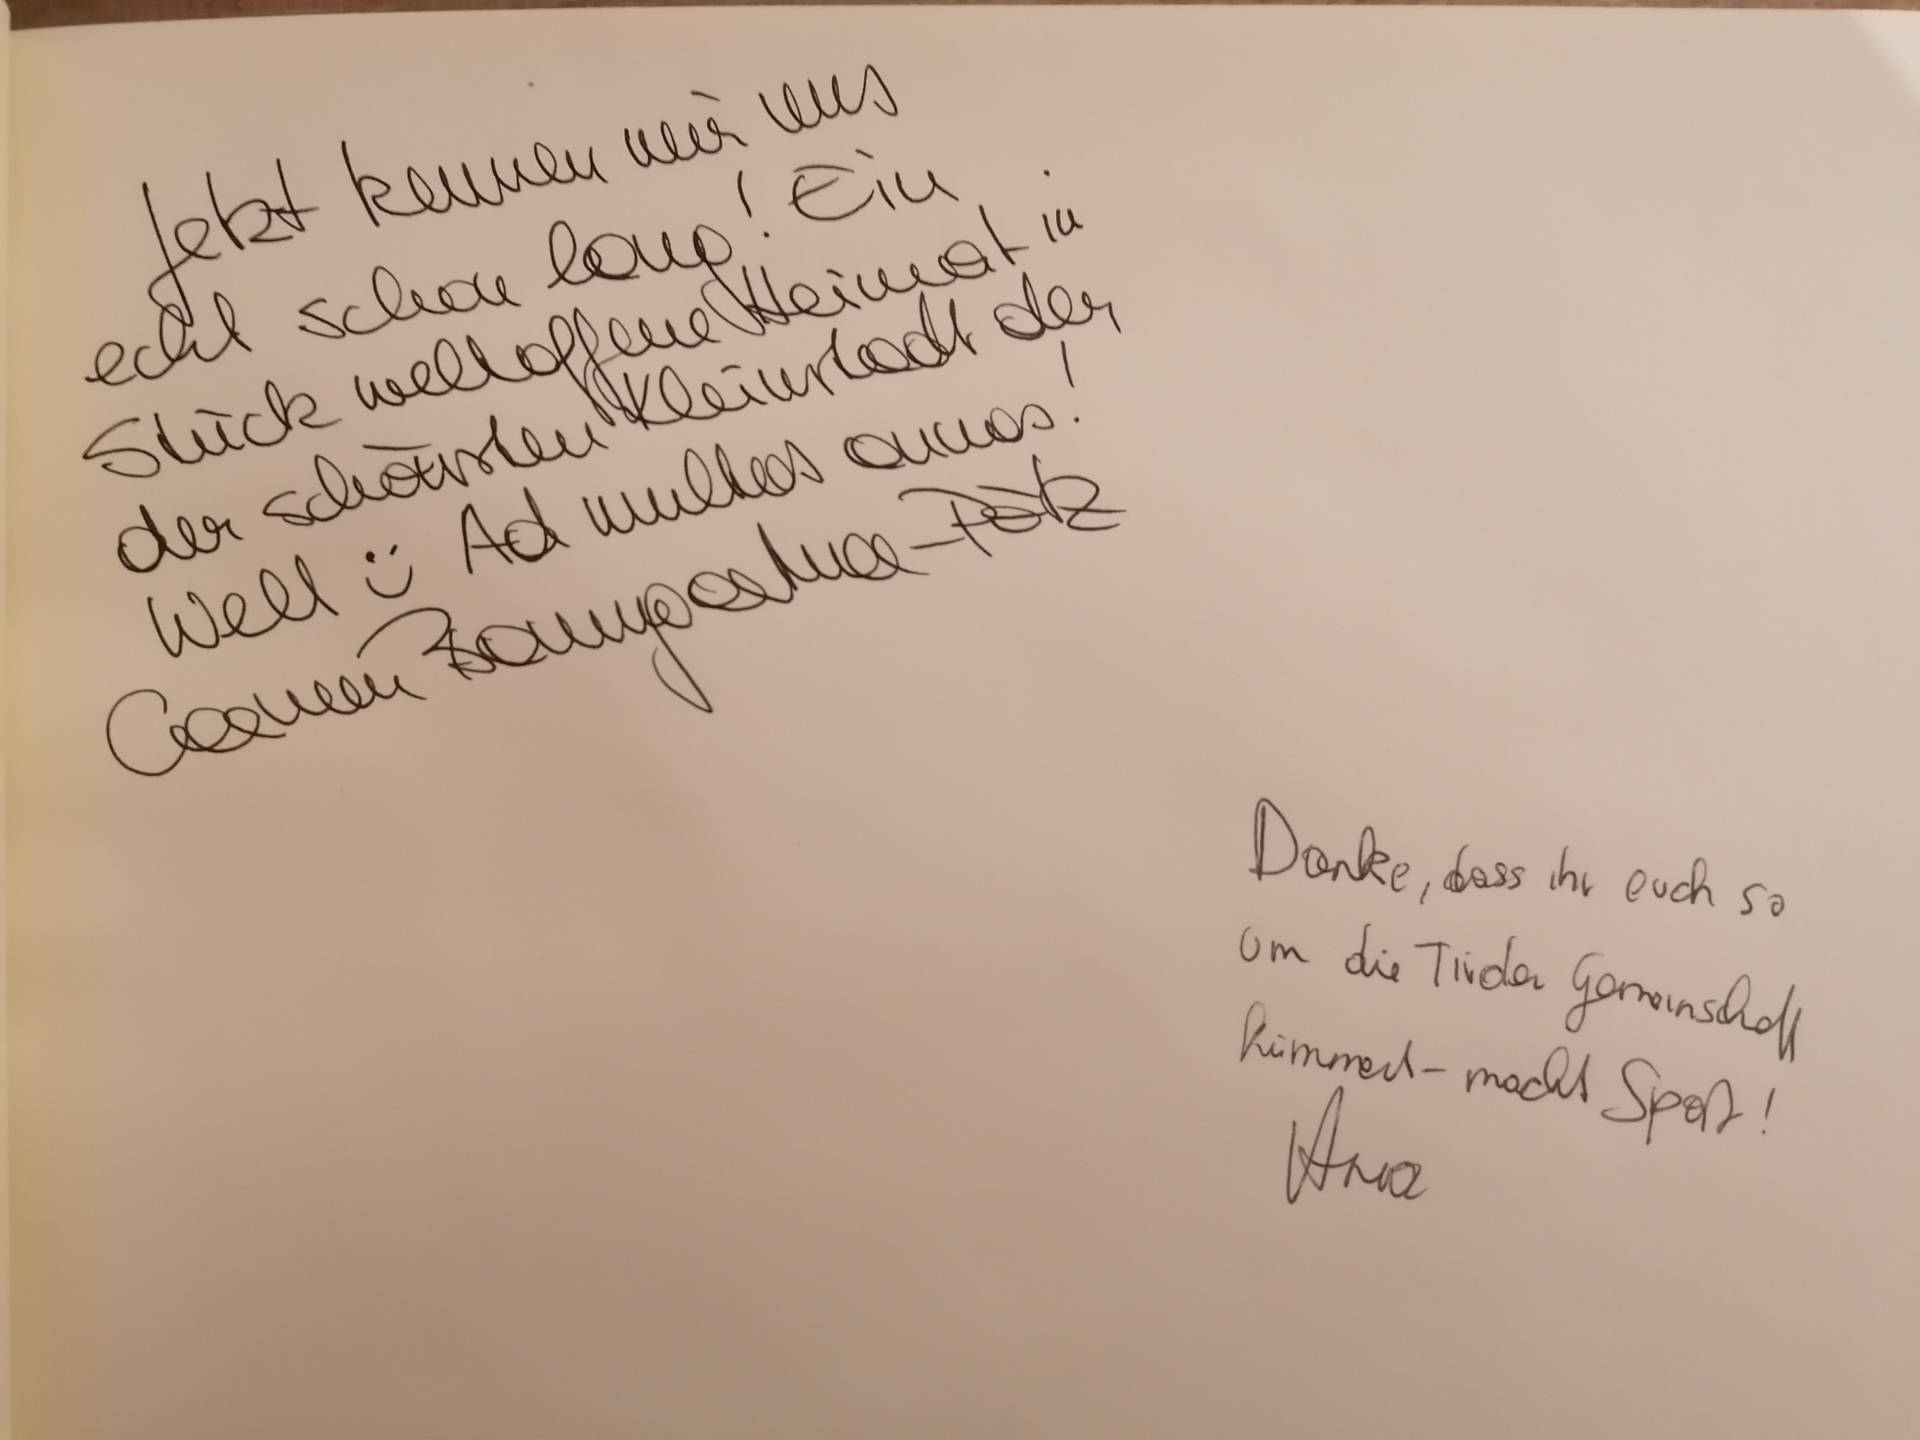 Jetzt kennen wir uns
echt schon lang! Ein
Stück weltoffene Heimat in
der schönsten Kleinstadt der
Welt :) Ad multos annos!
Carmen Baumgartner-Pötz
Danke, dass ihr euch so
um die Tiroler Gemeinschaft
kümmert - macht Spaß!
Anna